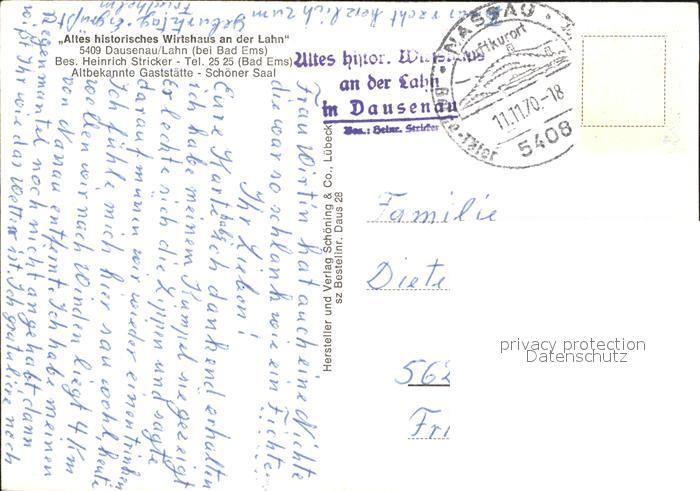 "Altes historisches Wirtshaus an der Lahn"
5409 Dausenau/Lahn (bei Bad Ems)
Bes. Heinrich Stricker - Tel. 25 25 (Bad Ems)
Altbekannte Gaststätte - Schöner Saal
Altes histor. Wirtshaus
an der Lahn
in Dausenau
Bes.: Heinr. Stricker
NASSAU
Luftkurort
11.11.70-18
5408
Hersteller und Verlag Schöning & Co., Lübeck
sz Bestellnr. Daus 28
Frau Wirtin hat auch eine Nichte
die war so schlank wie ein Fichte
Ihr Lieben!
Eure Karte hab ich dankend erhalten
ich habe meinem Kumpel sie gezeigt
Er leckte sich die Lippen und sagte
darauf müssen wir wieder einen trinken
Ich fühle mich hier sau wohl, heute
wollen wir nach Winden liegt 4 Km
von Nassau entfernt. Ich habe meinen
Regenmantel noch nicht angehabt dann
wißt Ihr wie das Wetter ist. Ich gratuliere noch
recht herzlich zum
Geburtstag
Familie
Diete
562
Fri
privacy protection
Datenschutz